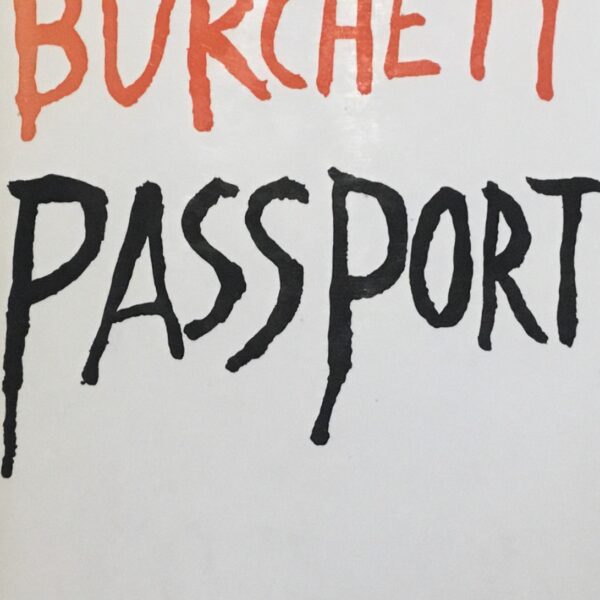 BURCHETT
PASSPORT